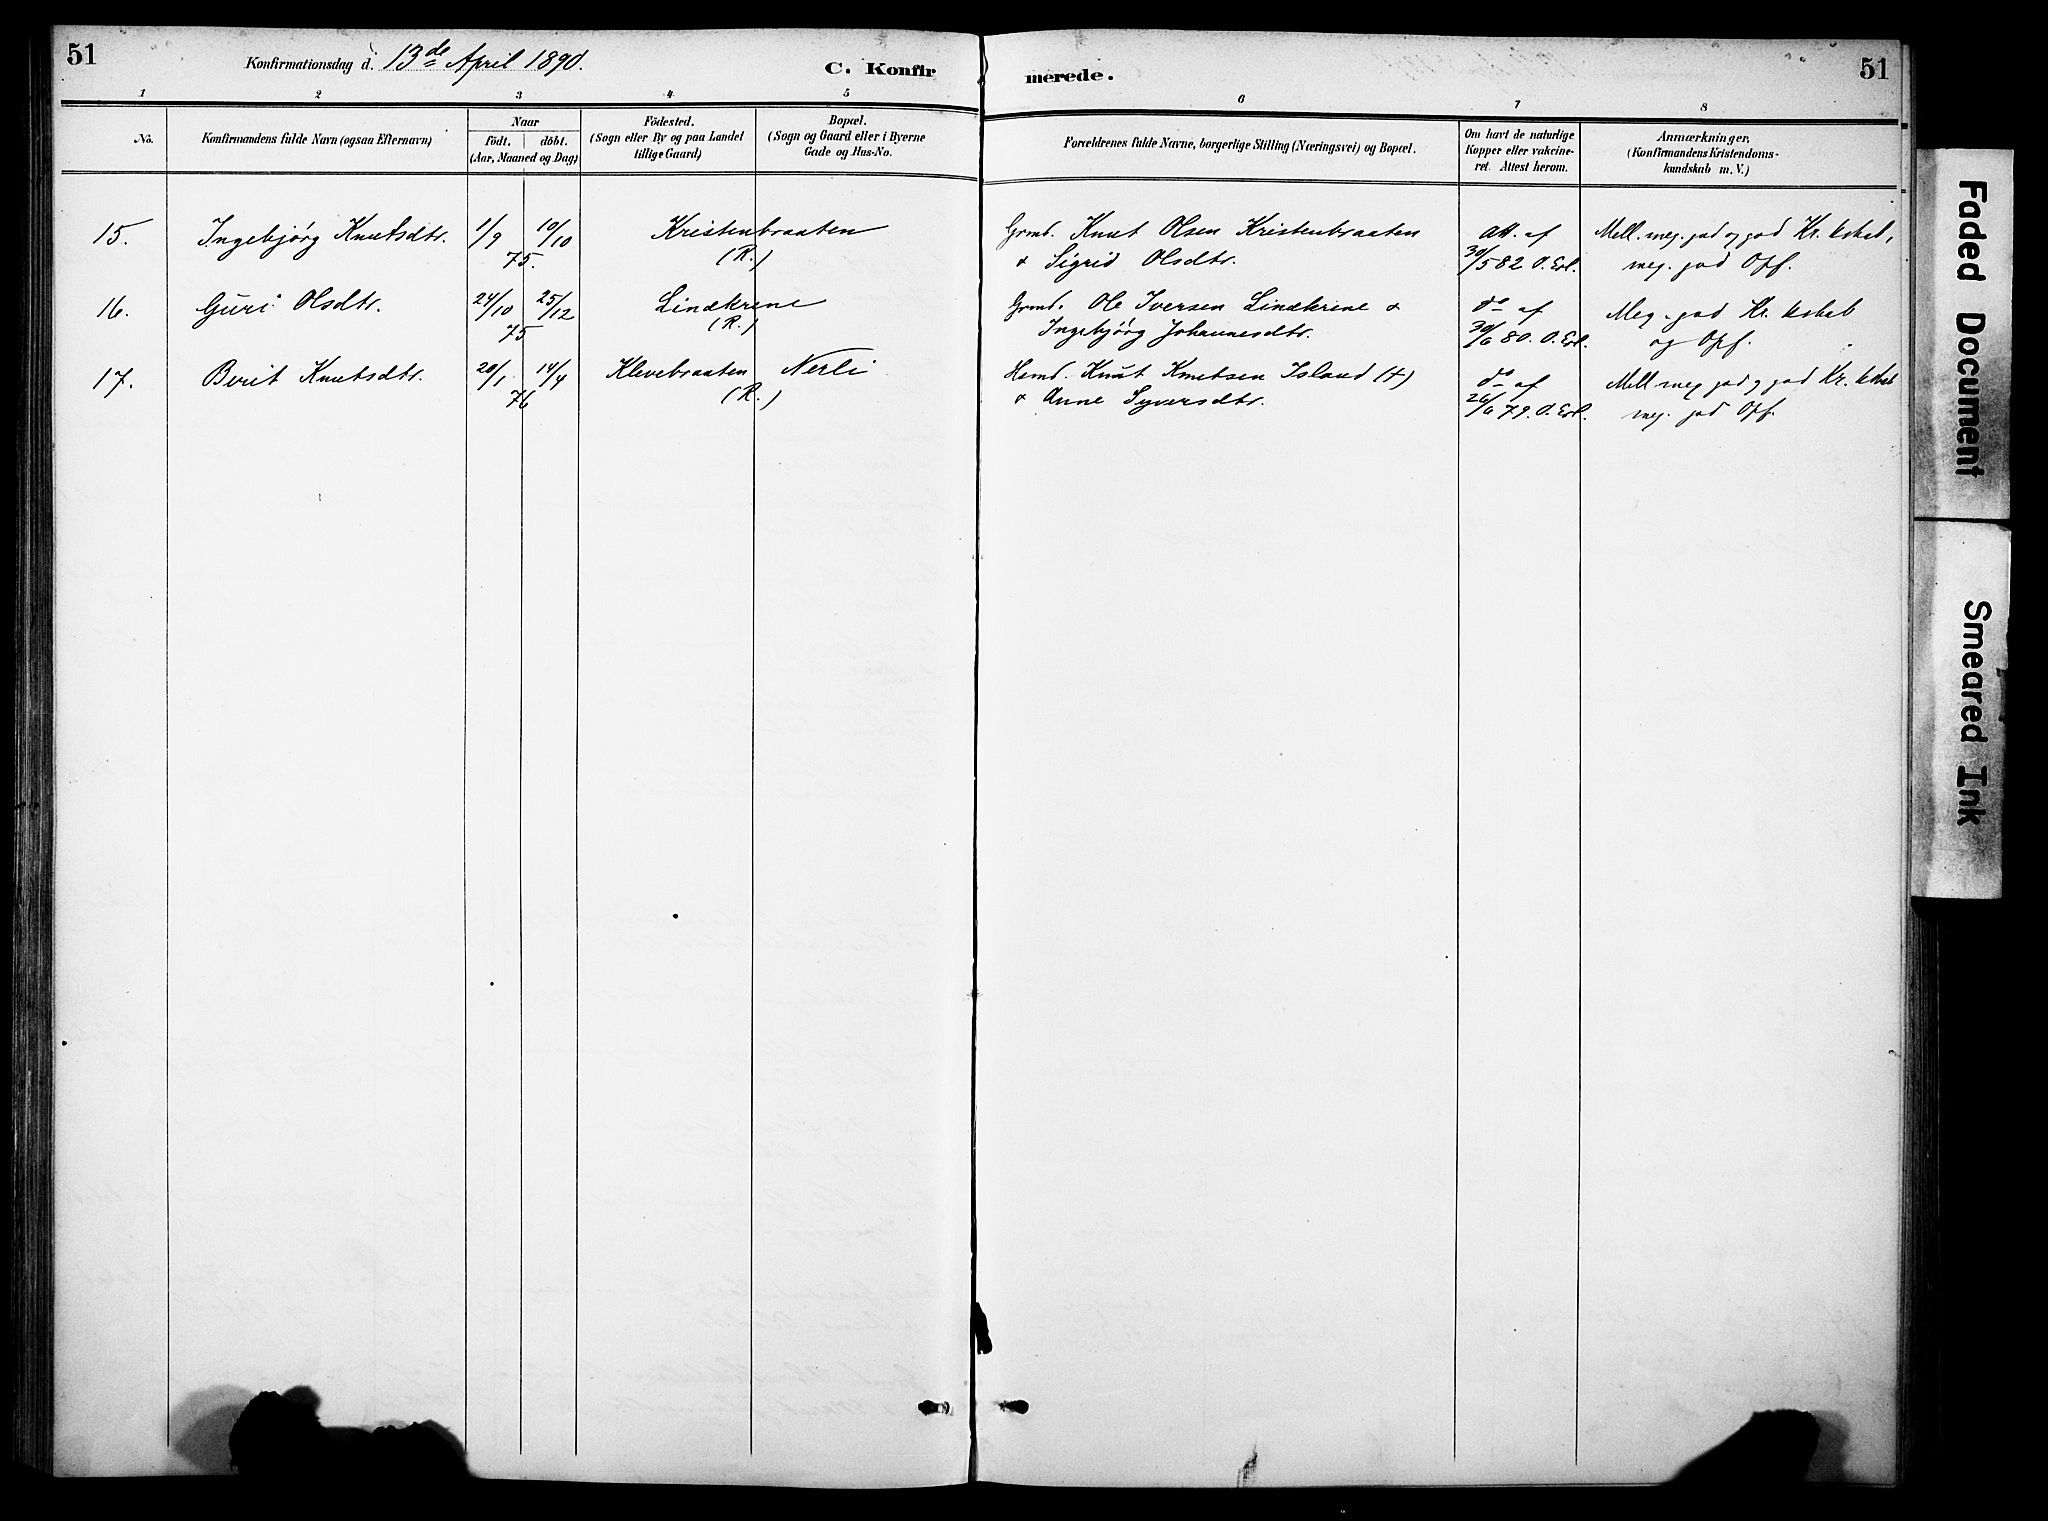 51
Konfirmationsdag d. 13de April 1890.
C. Konfirmerede.
51
1 2 3 4 5 6 7 8
No.
Konfirmandens fulde Navn (ogsaa Efternavn)
Naar
födt. döbt.
(Aar, Maaned og Dag)
Födested.
(Sogn eller By og paa Landet
tillige Gaard)
Bopæl.
(Sogn og Gaard eller i Byerne
Gade og Hus-No.
Forældrenes fulde Navne, borgerlige Stilling (Næringsvei) og Bopæl.
Om havt de naturlige
Kopper eller vakcine-
ret. Attest herom.
Anmærkninger,
(Konfirmandens Kristendoms-
kundskab m. V.)
15. Ingebjörg Knutsdtr. 1/9 10/10 Kristenbraaten Grmd. Knut Olsen Kristenbraaten Att. af Mell. meg. god og god Kr. kskab,
75. (R.) & Sigrid Olsdtr. 30/5 82 O. Erl. meg. god Opf.
16. Guri Olsdtr. 24/10 25/12 Lindkrine Grmd. Ole Iversen Lindkrine & do af Meg. god Kr. kskab
75 (R.) Ingebjörg Johannesdtr. 30/6 80. O. Erl. og Opf.
17. Berit Knutsdtr. 20/1 14/4 Klevebraaten Nerli Hsmd. Knut Knutsen Island (+) do af Mell meg god og god Kr. kskab
76 (R.) & Anne Syversdtr. 26/6 79. O. Erl. meg. god Opf.
Faded Document
Smeared Ink